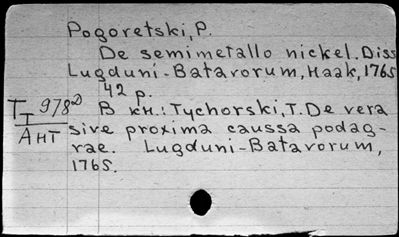 Pogoretski, P.
De semimetallo nickel. Diss
Lugduni-Batavorum, Haak, 1765
42 p.
В кн.: Tychorski, T. De vera
sive proxima caussa podag-
rae. Lugduni-Batavorum,
1765.
TT 978
Ант